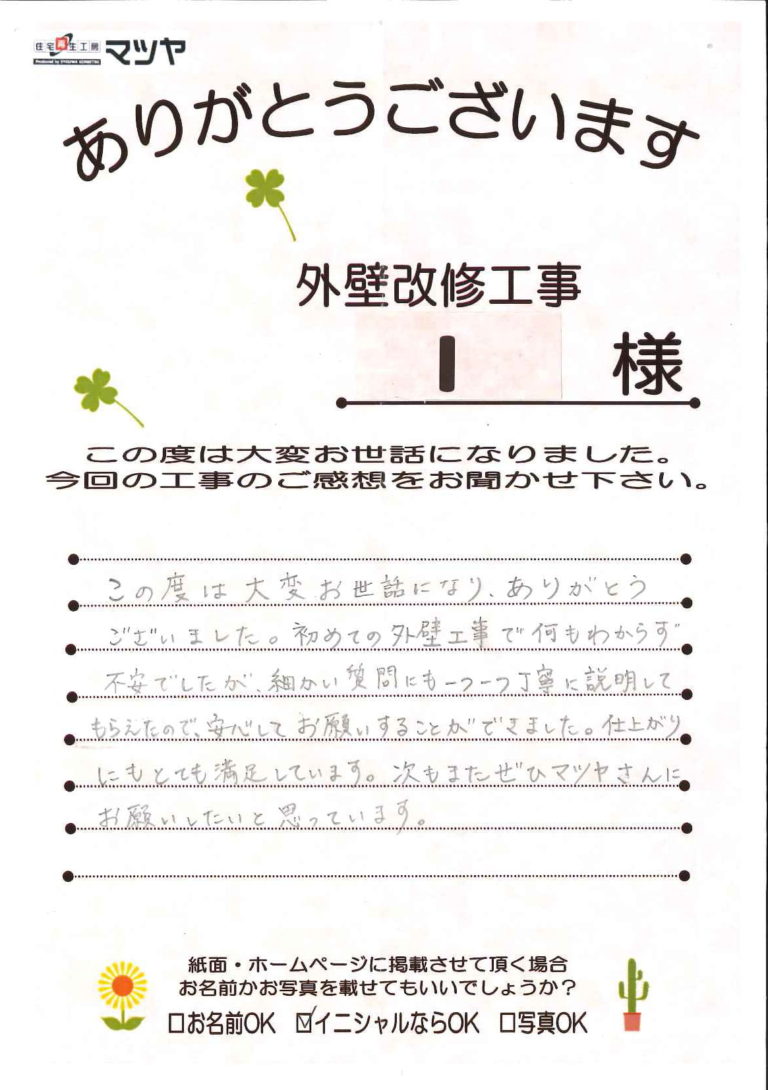 住宅再生工房 マツヤ
ありがとうございます
外壁改修工事
I 様
この度は大変お世話になりました。
今回の工事のご感想をお聞かせ下さい。
この度は大変お世話になり、ありがとう
ございました。初めての外壁工事で何もわからず
不安でしたが、細かい質問にも一つ一つ丁寧に説明して
もらえたので、安心してお願いすることができました。仕上がり
にもとても満足しています。次もまたぜひマツヤさんに
お願いしたいと思っています。
紙面・ホームページに掲載させて頂く場合
お名前かお写真を載せてもいいでしょうか？
□お名前OK ☑イニシャルならOK □写真OK